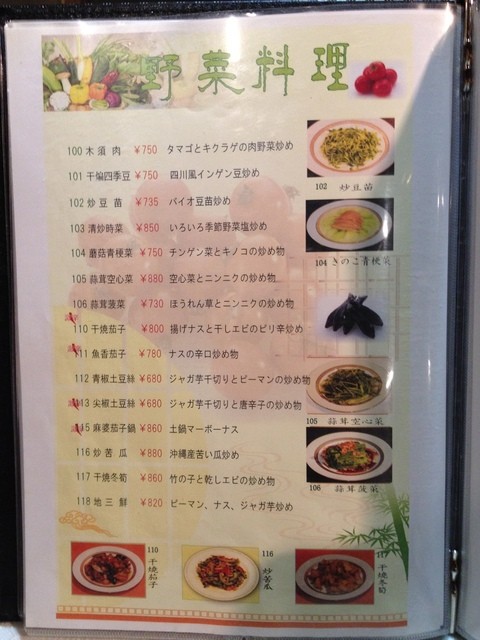 野菜料理
100 木須肉 ¥750 タマゴとキクラゲの肉野菜炒め
101 干煸四季豆 ¥750 四川風インゲン豆炒め
102 炒豆苗 ¥735 バイオ豆苗炒め
103 清炒時菜 ¥850 いろいろ季節野菜塩炒め
104 蘑菇青梗菜 ¥750 チンゲン菜とキノコの炒め物
105 蒜茸空心菜 ¥880 空心菜とニンニクの炒め物
106 蒜茸菠菜 ¥730 ほうれん草とニンニクの炒め物
110 干燒茄子 ¥800 揚げナスと干しエビのピリ辛炒め
111 魚香茄子 ¥780 ナスの辛口炒め物
112 青椒土豆絲 ¥680 ジャガ芋千切りとピーマンの炒め物
113 尖椒土豆絲 ¥680 ジャガ芋千切りと唐辛子の炒め物
115 麻婆茄子鍋 ¥860 土鍋マーボーナス
116 炒苦瓜 ¥880 沖縄産苦い瓜炒め
117 干燒冬筍 ¥860 竹の子と乾しエビの炒め物
118 地三鮮 ¥820 ピーマン、ナス、ジャガ芋炒め
102 炒豆苗
104 きのこ青梗菜
105 蒜茸空心菜
106 蒜茸菠菜
110 干燒茄子
116 炒苦瓜
117 干燒冬筍